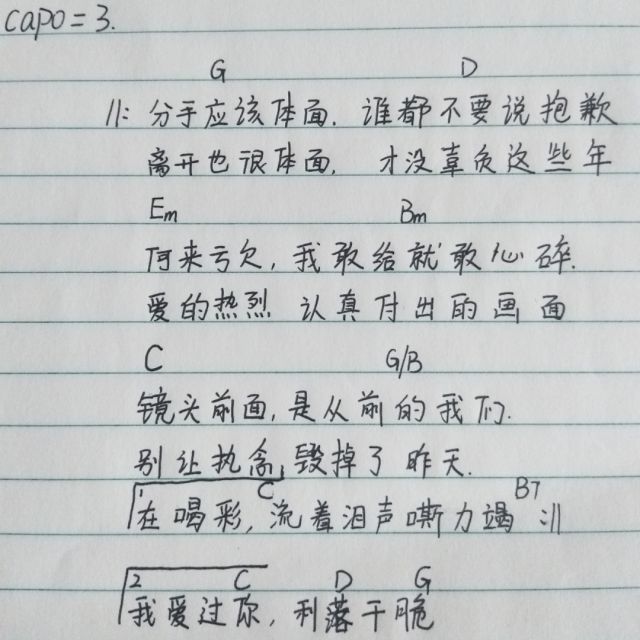 capo=3.
G D
||: 分手应该体面. 谁都不要说抱歉
离开也很体面, 才没辜负这些年
Em Bm
何来亏欠, 我敢给就敢心碎.
爱的热烈 认真付出的画面
C G/B
镜头前面, 是从前的我们.
别让执念毁掉了昨天.
1 C B7
在喝彩, 流着泪声嘶力竭 :||
2 C D G
我爱过你, 利落干脆